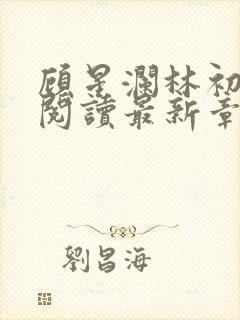 顧星瀾林初
閱讀最新章
劉昌海